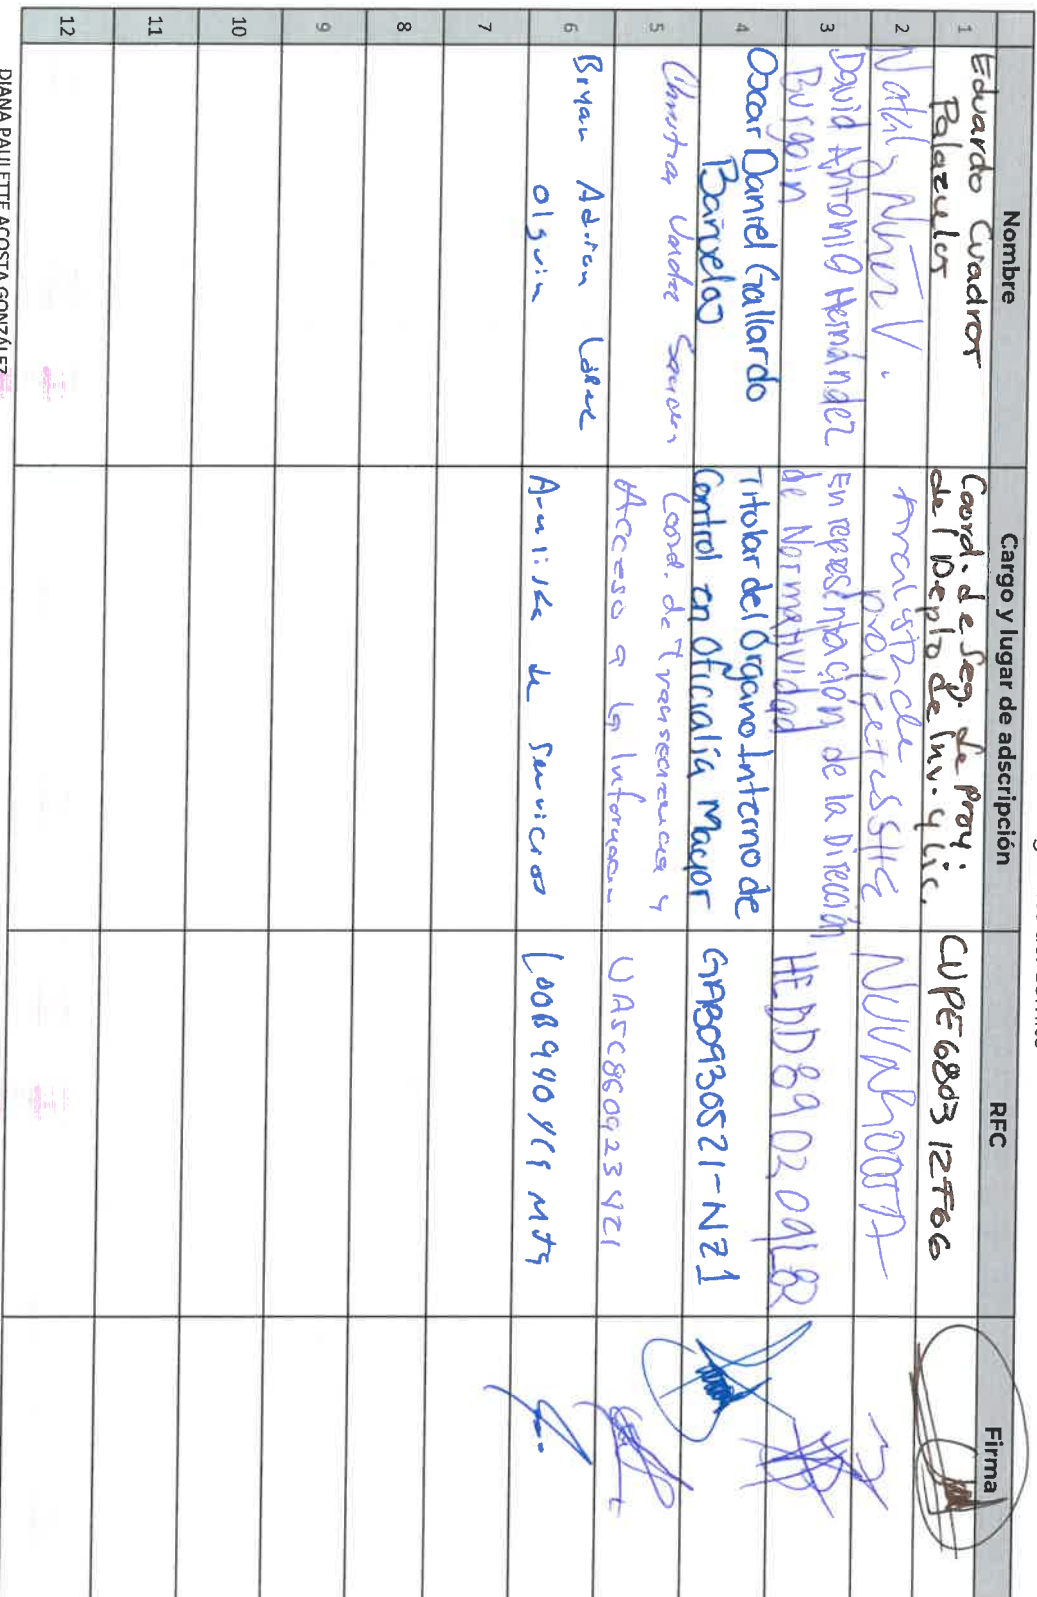 Nombre Cargo y lugar de adscripción RFC Firma
1 Eduardo Cuadros Palazuelos Coord. de Seg. de Proy. del Depto de Inv. y Lic. CUPE680312T66
2 Nataly Núñez V. Analista de proyectos SIIE
3 David Antonio Hernández Burgoin En representación de la Dirección de Normatividad HEBD890209L82
4 Oscar Daniel Gallardo Bañuelos Titular del Órgano Interno de Control en Oficialía Mayor GABO930521-NZ1
5 Coord. de Transparencia y Acceso a la Informacion UASC860923421
6 Bryan Adrian López Olguin Analista de Servicios
7
8
9
10
11
12
DIANA PAULETTE ACOSTA GONZÁLEZ